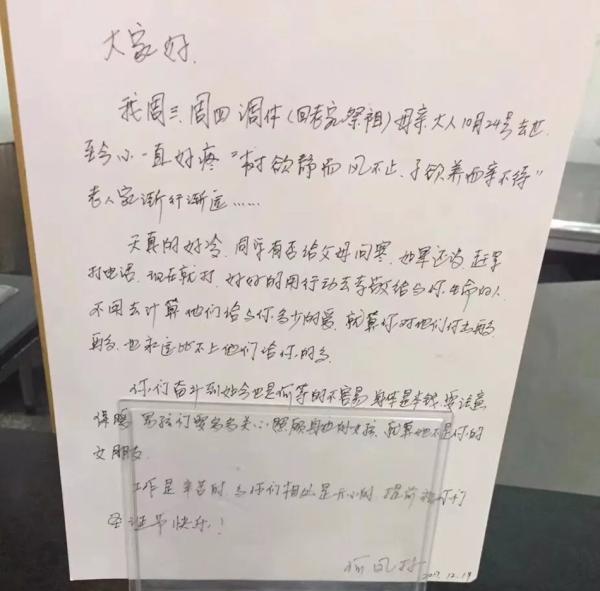 大家好.
我周三、周四调休(回老家祭祖)母亲大人10月24号去世
至今心一直好疼"树欲静而风不止,子欲养而亲不待"
老人家渐行渐远……
天真的好冷,同学有否给父母问寒,如果还没,赶紧
打电话,现在就打,好好的用行动去孝敬给与你生命的人
不用去计算他们给与你多少的爱,就算你对他们付出再多
再多,也永远比不上他们给你的多
你们奋斗到如今也是何等的不容易 身体是本钱,要注意
保暖 男孩们要多多关心照顾身边的女孩,就算她不是你的
女朋友
工作是辛苦的,与你们相处是开心的 提前祝你们
圣诞节快乐!
2017.12.19